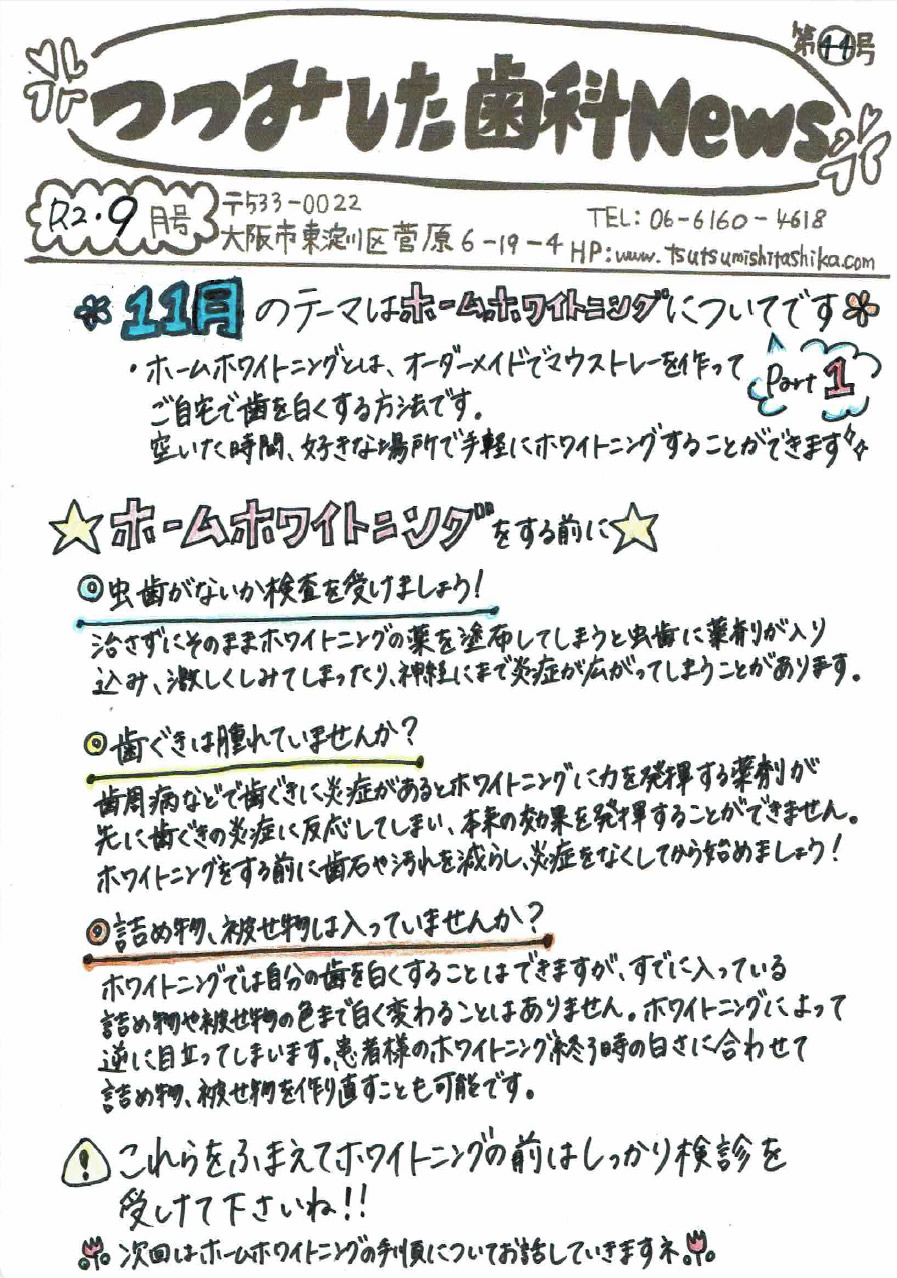 第44号
つつみした歯科News
R2.9月号
〒533-0022
大阪市東淀川区菅原6-19-4
TEL: 06-6160-4618
HP:www.tsutsumishitashika.com
11月のテーマはホームホワイトニングについてです
Part 1
・ホームホワイトニングとは、オーダーメイドでマウストレーを作って
ご自宅で歯を白くする方法です。
空いた時間、好きな場所で手軽にホワイトニングすることができます
☆ホームホワイトニングをする前に☆
◎虫歯がないか検査を受けましょう!
治さずにそのままホワイトニングの薬を塗布してしまうと虫歯に薬剤が入り
込み、激しくしみてしまったり、神経にまで炎症が広がってしまうことがあります。
◎歯ぐきは腫れていませんか?
歯周病などで歯ぐきに炎症があるとホワイトニングに力を発揮する薬剤が
先に歯ぐきの炎症に反応してしまい、本来の効果を発揮することができません。
ホワイトニングをする前に歯石や汚れを減らし、炎症をなくしてから始めましょう!
◎詰め物、被せ物は入っていませんか?
ホワイトニングでは自分の歯を白くすることはできますが、すでに入っている
詰め物や被せ物の色まで白く変わることはありません。ホワイトニングによって
逆に目立ってしまいます。患者様のホワイトニング終了時の白さに合わせて
詰め物、被せ物を作り直すことも可能です。
! これらをふまえてホワイトニングの前はしっかり検診を
受けて下さいね!!
次回はホームホワイトニングの手順についてお話していきますネ